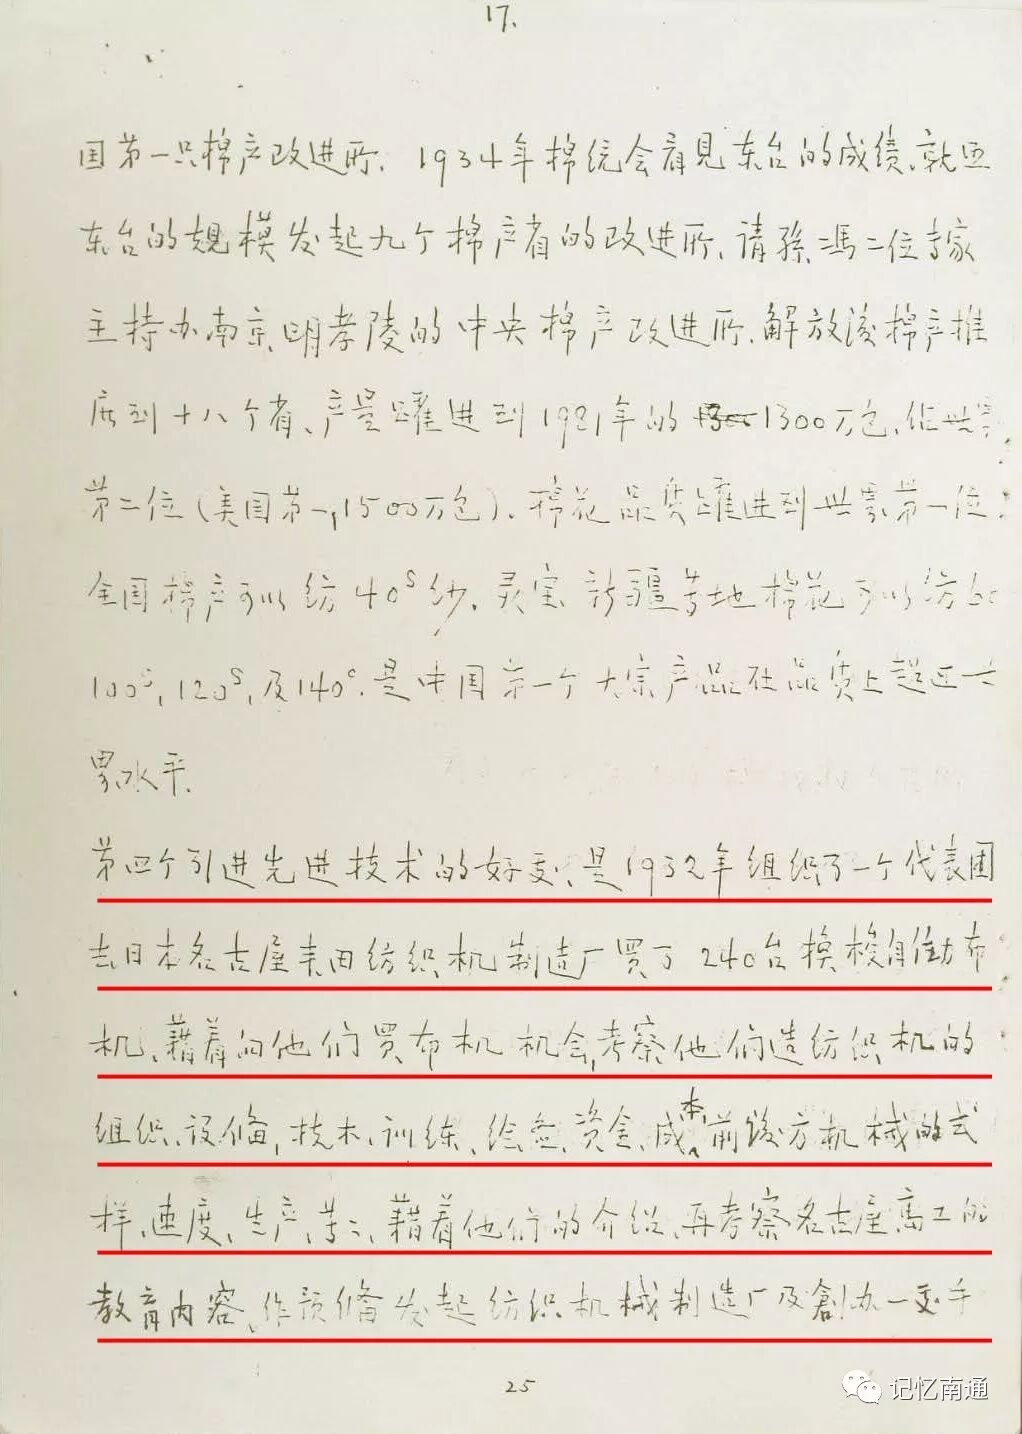 17.
国第一只棉产改进所. 1934年棉统会看见东台的成绩、就照
东台的规模发起九个棉产省的改进所、请孙、冯二位专家
主持办南京明孝陵的中央棉产改进所.解放後棉产推
广到十八个省、产量跃进到1981年的1300万包.佔世界
第二位(美国第一,1500万包).棉花品质跃进到世界第一位.
全国棉产可以纺40S纱.灵宝、新疆等地棉花可以纺60
100S,120S,及140S.是中国第一个大宗产品在品质上超过世
界水平.
第四个引进先进技术的好处、是1932年组织了一个代表团
去日本名古屋丰田纺织机制造厂买了240台换梭自动布
机、藉着向他们买布机机会,考察他们造纺织机的
组织、设备,技术、训练、绘画、资金、成本、前後方机械的式
样、速度、生产、等二、藉着他们的介绍、再考察名古屋高工的
教育内容、作预备发起纺织机械制造厂及创办一交手
25
记忆南通